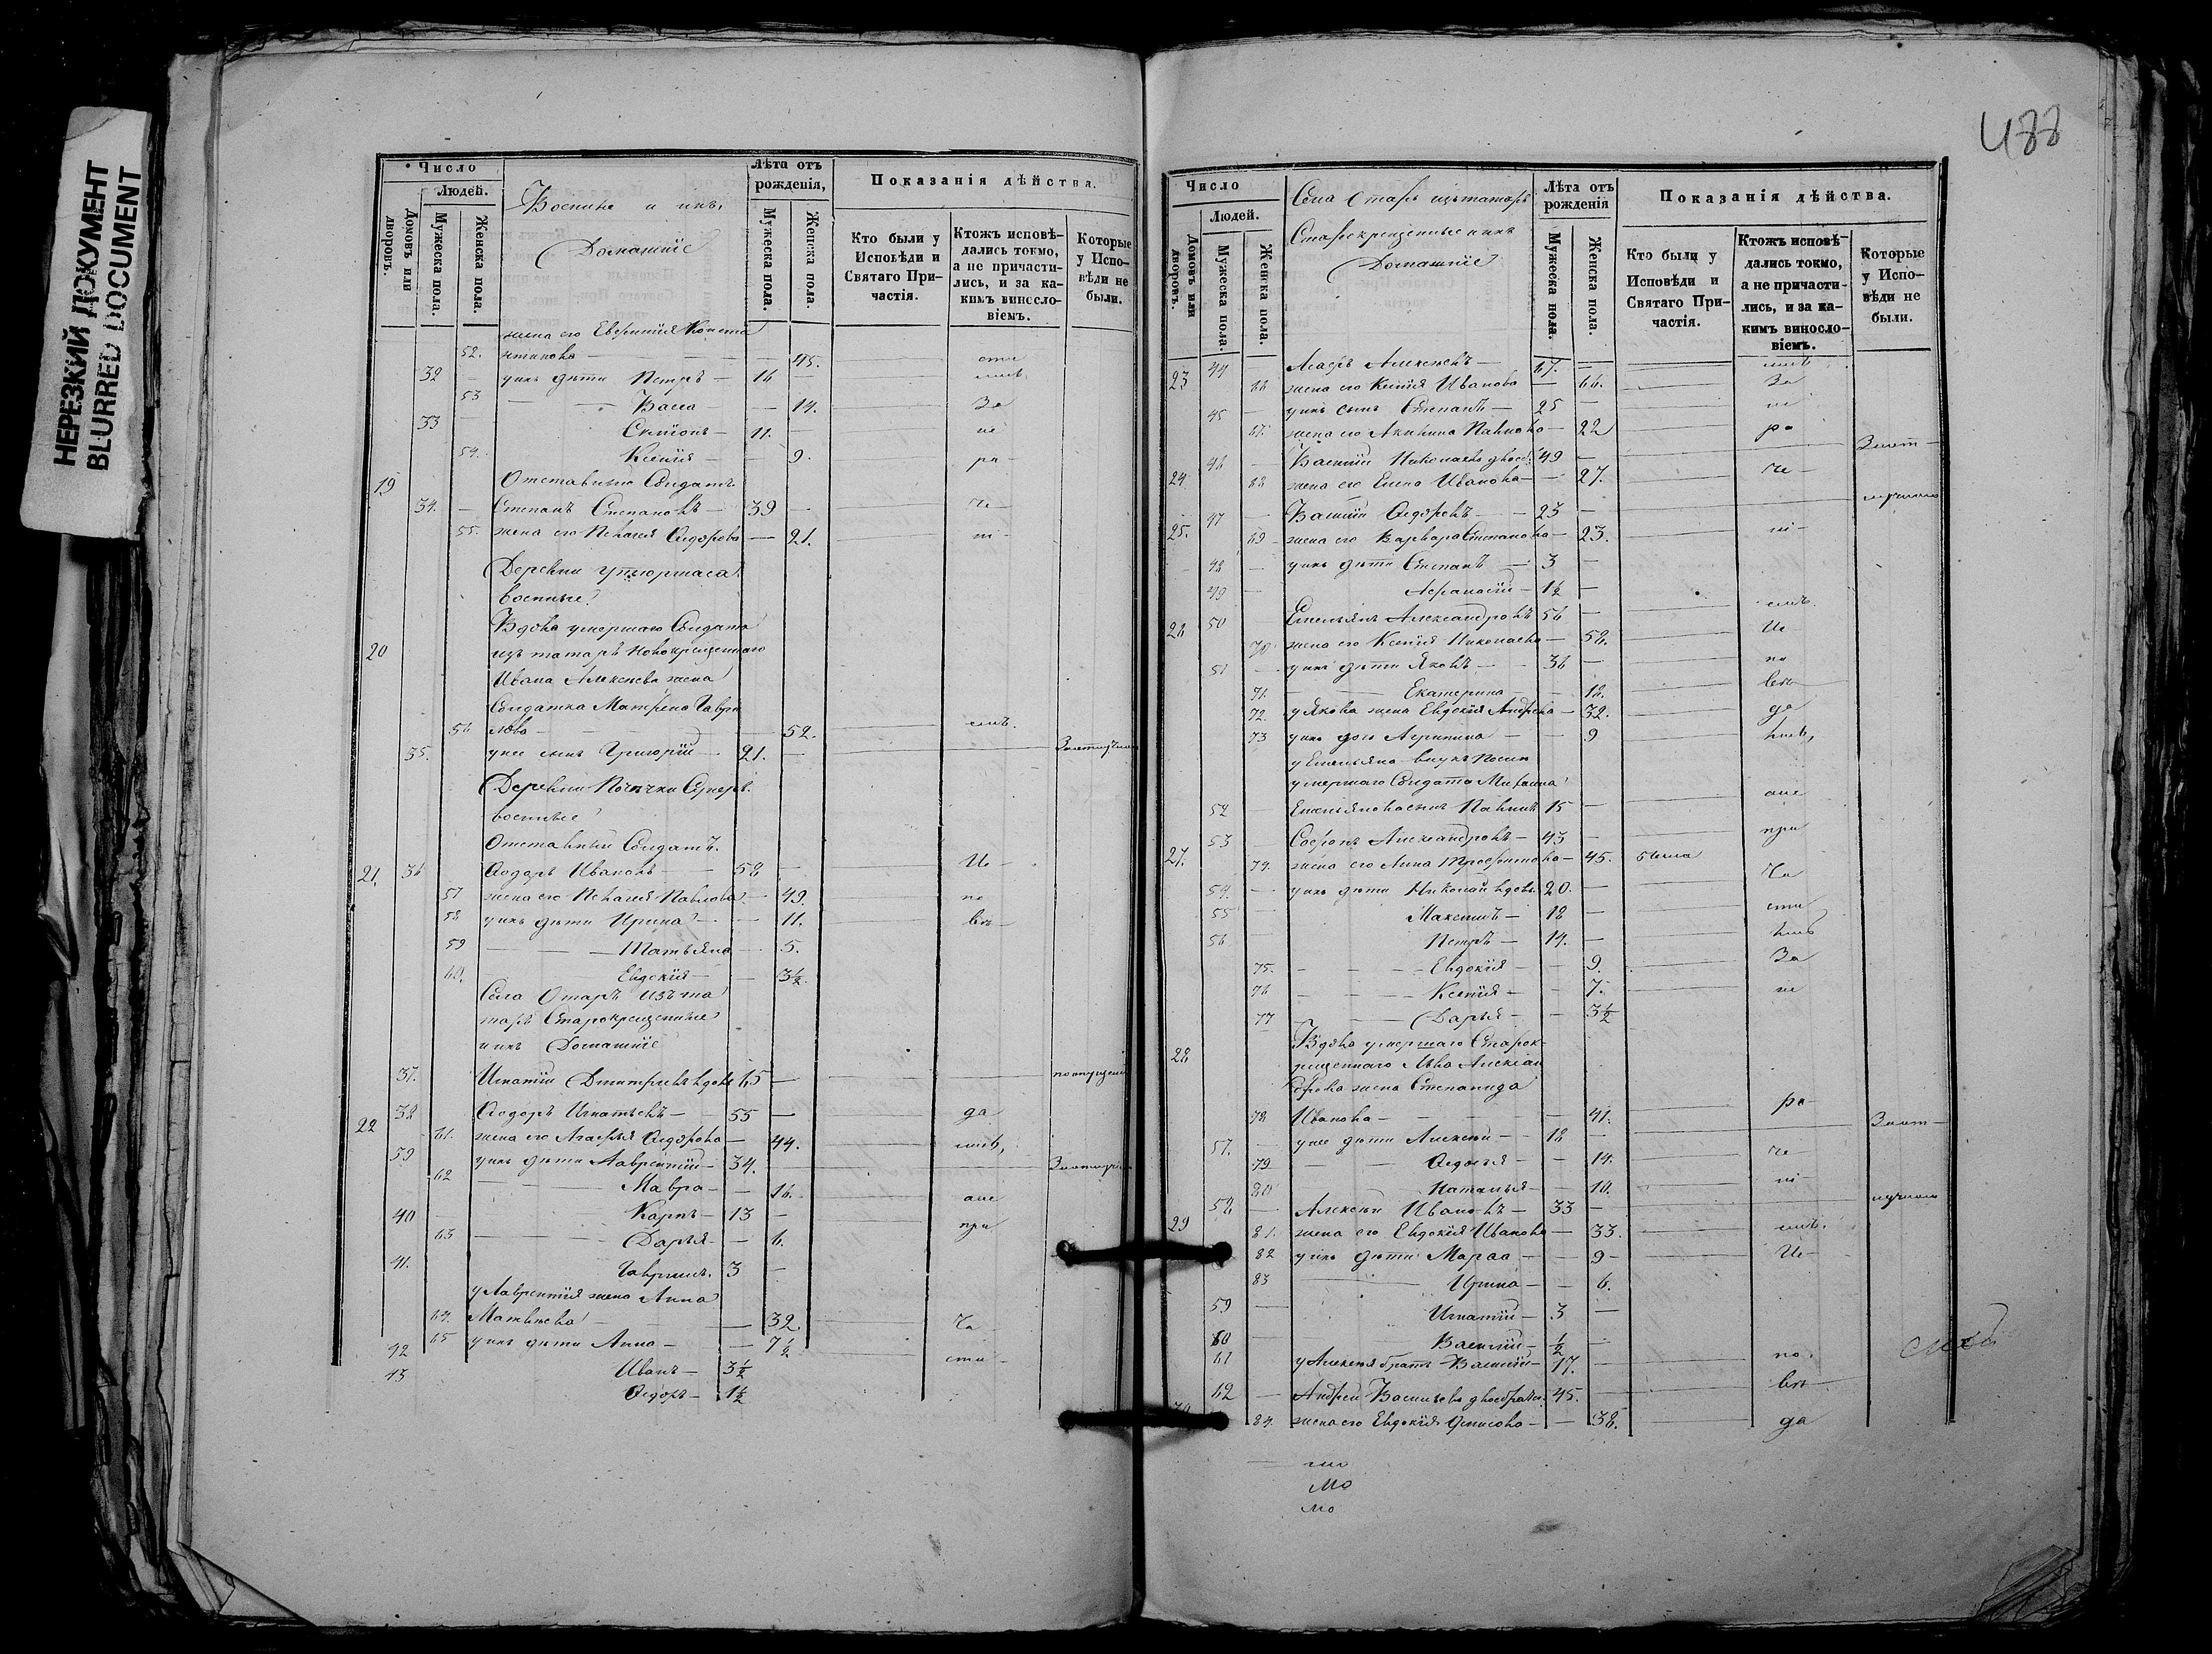 НЕРЕЗКИЙ ДОКУМЕНТ
BLURRED DOCUMENT
488
Число
Людей.
Домовъ или дворовъ.
Мужеска пола.
Женска пола.
Военные и ихъ
Домашніе
Лѣта отъ рожденія,
Мужеска пола.
Женска пола.
Показанія дѣйства.
Кто были у Исповѣди и Святаго Причастія.
Ктожъ исповѣдались токмо, а не причастились, и за какимъ винословіемъ.
Которые у Исповѣди не были.
жена его
52. нтинова — 45.
32 — у нихъ дѣти Петръ — 16
53 — Васса — 14. За
33 — Симіонъ — 11. не
54. Ксенія — 9. ра
19 Отставный Солдатъ
34. — Степанъ Степановъ — 39 — че
55. жена его Пелагея Сидорова — 21. ні
Деревни
военные
Вдова умершаго Солдата
20 изъ татаръ новокрещеннаго
Ивана Алексѣева жена
Солдатка Матрена Гаври
56 лова — 52. емъ.
35. у нее сынъ Григорій — 21. —
Деревни
военные
Отставный Солдатъ.
21. 36 Ѳодоръ Ивановъ — 58 — Ис
57 жена его Пелагея Павлова — 49. по
58 у нихъ дѣти Ирина — 11. вѣ
59 — Татьяна — 5.
60. Евдокія — 3½.
Села Отаръ изъ та
таръ Старокрещенные
и ихъ Домашніе
37. Игнатій Дмитріевъ вдовъ 65 — по опущенію
22 38 Ѳодоръ Игнатьевъ — 55 — да
61. жена его Агафья Ѳедорова — 44. лись,
39 у нихъ дѣти Лаврентій — 34.
62 — Мавра — 16. ане
40 Карпъ — 13 —
63 — Дарья — 6. при
41. Гаврилъ. 3 —
у Лаврентія жена Анна
64. Матвѣева — 32. ча
65 у нихъ дѣти Анна — 7½
42 Иванъ — 3½ сти
43 Ѳедоръ — 1½
Число
Людей.
Домовъ или дворовъ.
Мужеска пола.
Женска пола.
Села Отаръ изъ татаръ
Старокрещенные и ихъ
Домашніе
Лѣта отъ рожденія
Мужеска пола.
Женска пола.
Показанія дѣйства.
Кто были у Исповѣди и Святаго Причастія.
Ктожъ исповѣдались токмо, а не причастились, и за какимъ винословіемъ.
Которые у Исповѣди не были.
23 44 — Алексѣевъ — 67. — лись
66 жена его Ксенія Иванова — 66. За
45 — у нихъ сынъ Степанъ — 25 — не
67. жена его Акилина Павлова — 22 ра
24 46 — Василій Николаевъ 49 —
68 жена его Елена Иванова — 27. че
25. 47 — Василій Ѳедоровъ — 23 —
69 — жена его Варвара Степанова — 23. ні
48 — у нихъ дѣти Степанъ — 3 —
49 — Аѳанасій — 1½ —
26 50 Емельянъ Александровъ 56 — емъ.
70. жена его Ксенія Николаева — 58. Ис
51 — у нихъ дѣти Яковъ — 36 — по
71. — Екатерина — 18. вѣ
72. у Якова жена Евдокія Андреева — 32. да
73 у нихъ дочь Агрипина — 9 лись,
у Емельяна внукъ
умершаго Солдата Михаила
52 — Емельянова сынъ Павелъ 15 — ане
27. 53 — Софронъ Александровъ — 43 — при
74. жена его Анна Трофимова — 45. была
54. — у нихъ дѣти Николай вдовъ 20. — ча
55 — Максимъ — 18 — сти
56 Петръ — 14. — лись
75. — Евдокія — 9. За
76 — Ксенія — 7. не
77 — Дарья — 3½
28 Вдова умершаго Старок
рещеннаго Льва Алексан
дрова жена Степанида
78 Иванова — 41. ра
57. — у нее дѣти Алексѣй — 18 —
79 — Ѳедосья — 14. че
80 Наталья — 10. ні
29 58 — Алексѣй Ивановъ — 33 —
81. жена его Евдокія Иванова — 33. емъ.
82 у нихъ дѣти Марѳа — 9 — Ис
83 — Ирина — 6.
59 — Игнатій — 3 —
60 — Василій — ½ —
61 у Алексѣя братъ Василій — 17. — по.
62 — Андрей Васильевъ 45. — вѣ
30 84. жена его Евдокія Денисова — 38. да